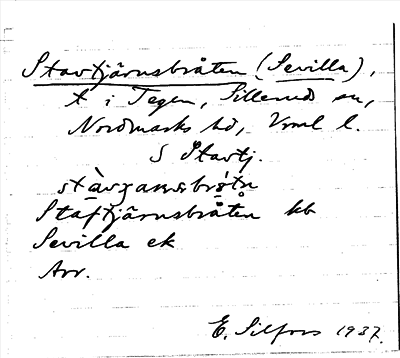 Stavtjärnsbråten (Sevilla),
t i Tegen, Sillerud sn,
Nordmarks hd, Vrml l.
S Stavtj.
Staftjärnsbråten kb
Sevilla ek
Avr.
E. Silfors 1937.